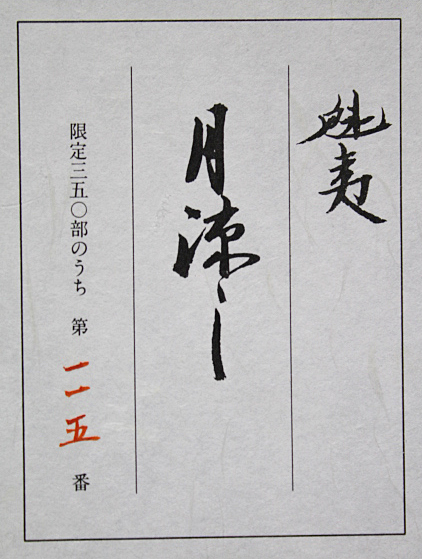 魁夷
月涼し
限定三五〇部のうち 第 一一五 番